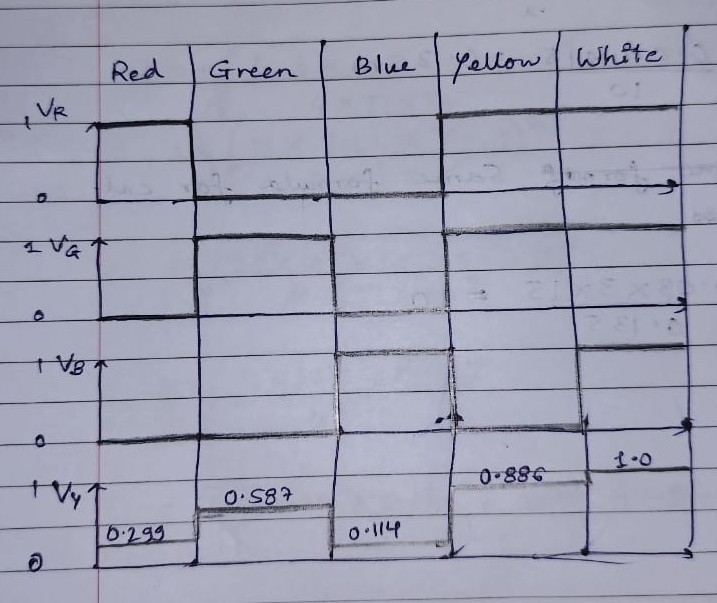 Red Green Blue Yellow White
1 VR
0
1 VG
0
1 VB
0
1 Vy
0.299 0.587 0.114 0.886 1.0
0